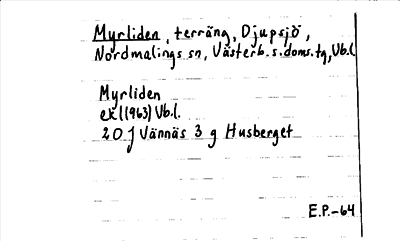 Myrliden, terräng, Djupsjö,
Nordmalings sn, Västerb.s.doms.tg, Vb.l.
Myrliden
ek (1963) Vb.l.
20 J Vännäs 3 g Husberget
E.P.-64